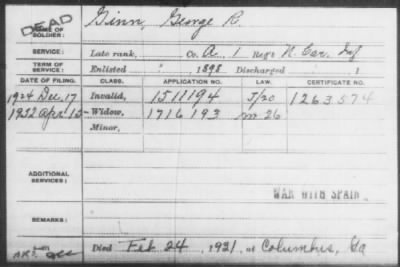 DEAD
NAME OF SOLDIER: Ginn, George R.
SERVICE: Late rank, Co. A, 1 Reg't N. Car. Inf
TERM OF SERVICE: Enlisted " 1898 Discharged 1
DATE OF FILING. CLASS. APPLICATION NO. LAW. CERTIFICATE NO.
1924 Dec. 17 Invalid, 1511194 J/20 1263574
1932 Apr. 15 Widow, 1716193 m 26
Minor,
ADDITIONAL SERVICES:
WAR WITH SPAIN
REMARKS:
Died Feb 24, 1921, at Columbus, Ga